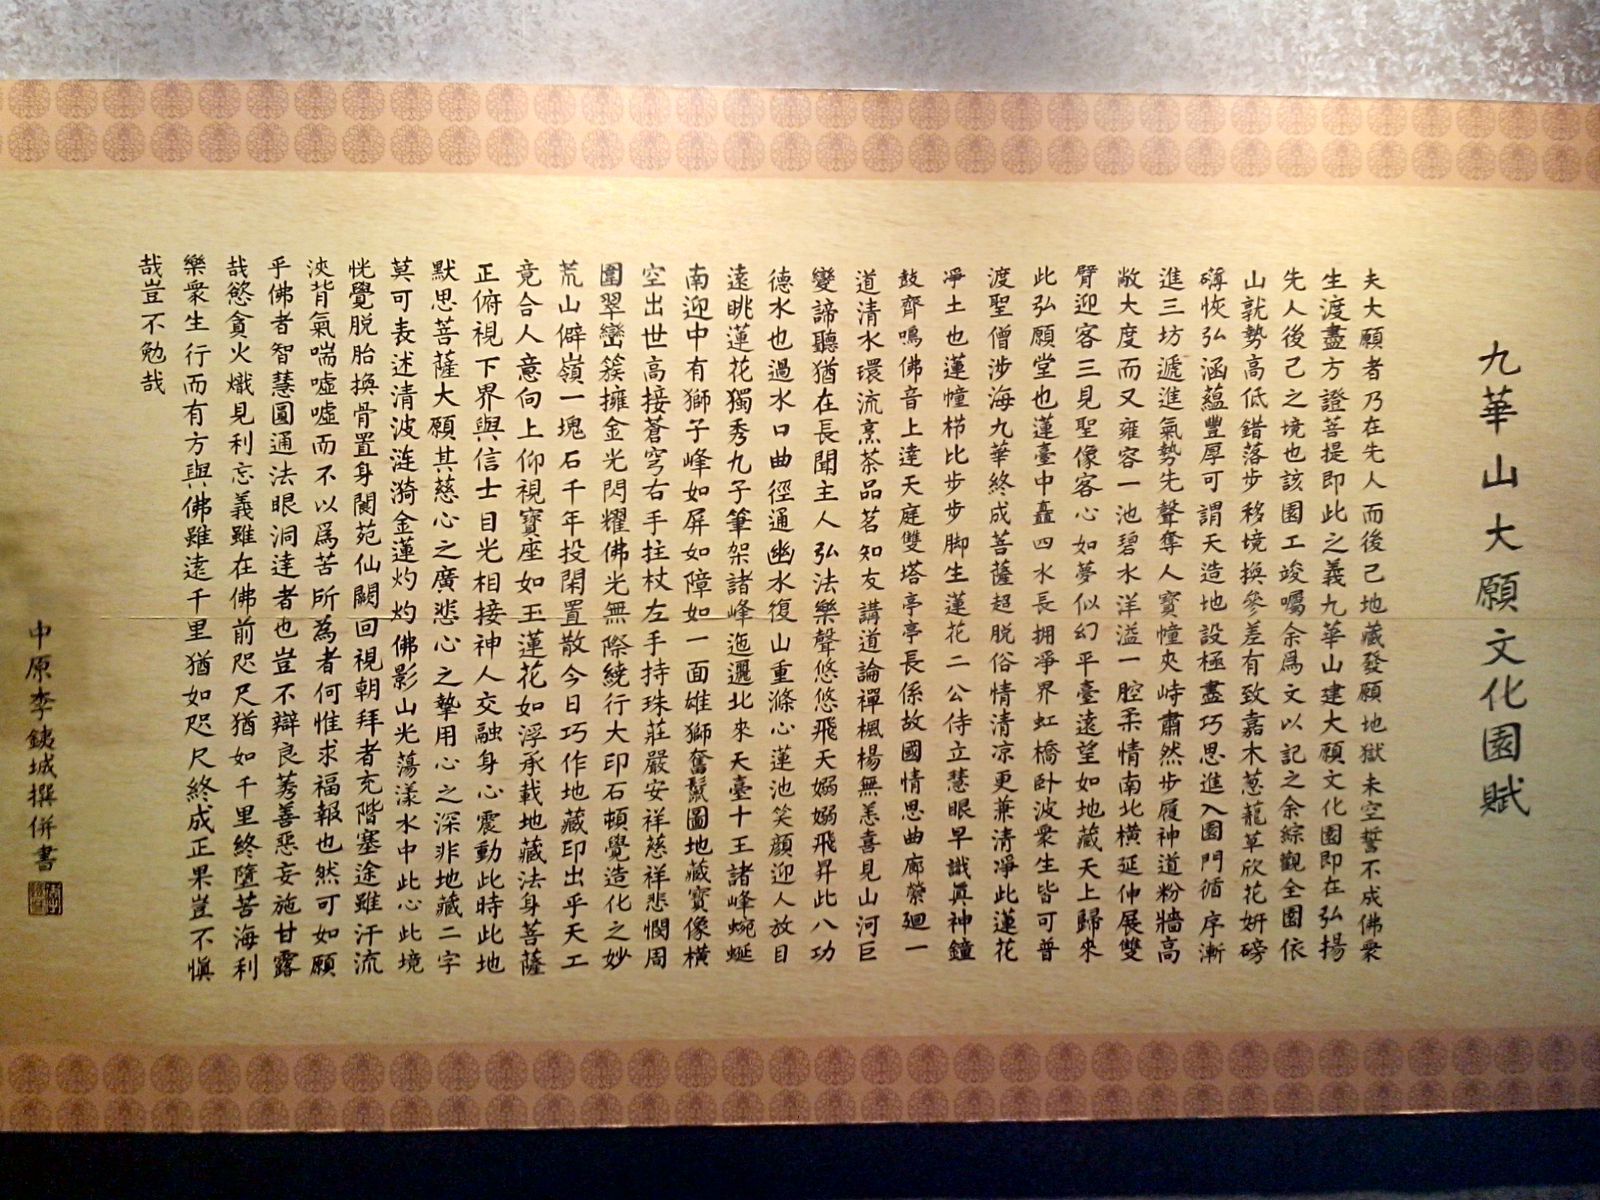 九華山大願文化園賦
夫大願者乃在先人而後己地藏發願地獄未空誓不成佛衆
生渡盡方證菩提即此之義九華山建大願文化園即在弘揚
先人後己之境也該園工竣囑余爲文以記之余綜觀全園依
山就勢高低錯落步移境換參差有致嘉木葱蘢草欣花妍磅
礴恢弘涵蘊豐厚可謂天造地設極盡巧思進入園門循序漸
進三坊遞進氣勢先聲奪人寶幢夾峙肅然步履神道粉牆高
敞大度而又雍容一池碧水洋溢一腔柔情南北橫延伸展雙
臂迎客三見聖像客心如夢似幻平臺遠望如地藏天上歸來
此弘願堂也蓮臺中矗四水長拥淨界虹橋卧波衆生皆可普
渡聖僧涉海九華終成菩薩超脱俗情清凉更兼清淨此蓮花
淨土也蓮幢櫛比步步脚生蓮花二公侍立慧眼早識真神鐘
鼓齊鳴佛音上達天庭雙塔亭亭長係故國情思曲廊縈廻一
道清水環流烹茶品茗知友講道論禪楓楊無恙喜見山河巨
變諦聽猶在長聞主人弘法樂聲悠悠飛天嫋嫋飛昇此八功
德水也過水口曲徑通幽水復山重滌心蓮池笑顔迎人放目
遠眺蓮花獨秀九子筆架諸峰迤邐北來天臺十王諸峰蜿蜒
南迎中有獅子峰如屏如障如一面雄獅奮鬣圖地藏寶像橫
空出世高接蒼穹右手拄杖左手持珠莊嚴安祥慈祥悲憫周
圍翠巒簇擁金光閃耀佛光無際繞行大印石頓覺造化之妙
荒山僻嶺一塊石千年投閑置散今日巧作地藏印出乎天工
竟合人意向上仰視寶座如玉蓮花如浮承載地藏法身菩薩
正俯視下界與信士目光相接神人交融身心震動此時此地
默思菩薩大願其慈心之廣悲心之摯用心之深非地藏二字
莫可表述清波漣漪金蓮灼灼佛影山光蕩漾水中此心此境
恍覺脱胎換骨置身閬苑仙闕回視朝拜者充階塞途雖汗流
浹背氣喘噓噓而不以爲苦所為者何惟求福報也然可如願
乎佛者智慧圓通法眼洞達者也豈不辯良莠善惡妄施甘露
哉慾貪火熾見利忘義雖在佛前咫尺猶如千里終墮苦海利
樂衆生行而有方與佛雖遠千里猶如咫尺終成正果豈不慎
哉豈不勉哉
中原李銕城撰併書